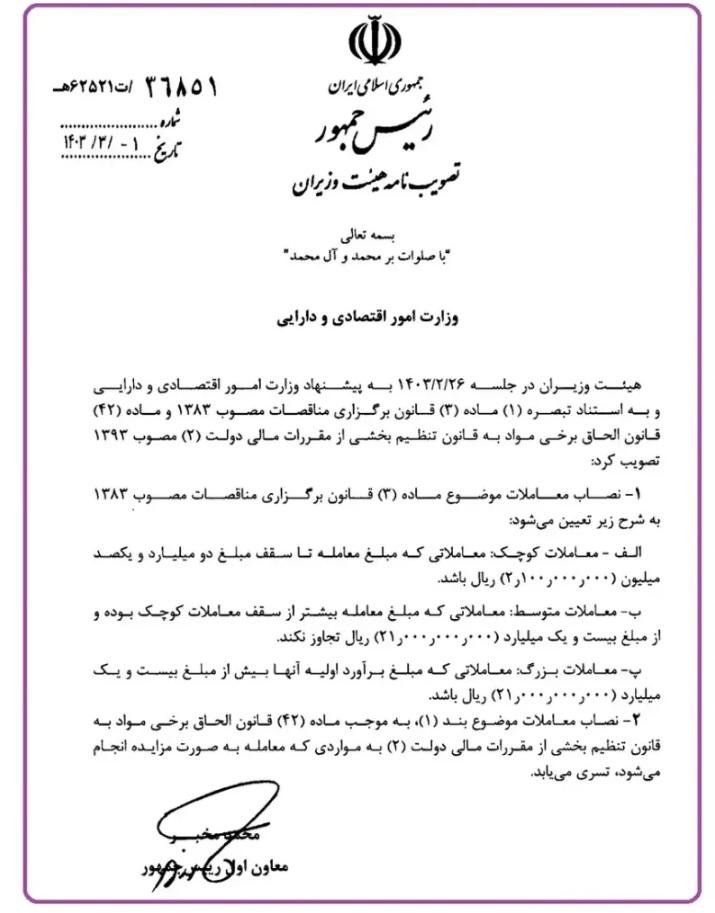 جمهوری اسلامی ایران
رئیس جمهور
تصویب نامه هیئت وزیران
۳۶۸۵۱ /ت۶۲۵۲۱هـ
شماره
تاریخ ۱۴۰۳/۳/-۱
بسمه تعالی
"با صلوات بر محمد و آل محمد"
وزارت امور اقتصادی و دارایی
هیئت وزیران در جلسه ۱۴۰۳/۲/۲۶ به پیشنهاد وزارت امور اقتصادی و دارایی
و به استناد تبصره (۱) ماده (۳) قانون برگزاری مناقصات مصوب ۱۳۸۳ و ماده (۴۲)
قانون الحاق برخی مواد به قانون تنظیم بخشی از مقررات مالی دولت (۲) مصوب ۱۳۹۳
تصویب کرد:
۱- نصاب معاملات موضوع ماده (۳) قانون برگزاری مناقصات مصوب ۱۳۸۳
به شرح زیر تعیین می‌شود:
الف - معاملات کوچک: معاملاتی که مبلغ معامله تا سقف مبلغ دو میلیارد و یکصد
میلیون (۲٫۱۰۰٫۰۰۰٫۰۰۰) ریال باشد.
ب- معاملات متوسط: معاملاتی که مبلغ معامله بیشتر از سقف معاملات کوچک بوده و
از مبلغ بیست و یک میلیارد (۲۱٫۰۰۰٫۰۰۰٫۰۰۰) ریال تجاوز نکند.
پ- معاملات بزرگ: معاملاتی که مبلغ برآورد اولیه آنها بیش از مبلغ بیست و یک
میلیارد (۲۱٫۰۰۰٫۰۰۰٫۰۰۰) ریال باشد.
۲- نصاب معاملات موضوع بند (۱)، به موجب ماده (۴۲) قانون الحاق برخی مواد به
قانون تنظیم بخشی از مقررات مالی دولت (۲) به مواردی که معامله به صورت مزایده انجام
می‌شود، تسری می‌یابد.
محمد مخبر
معاون اول رییس جمهور